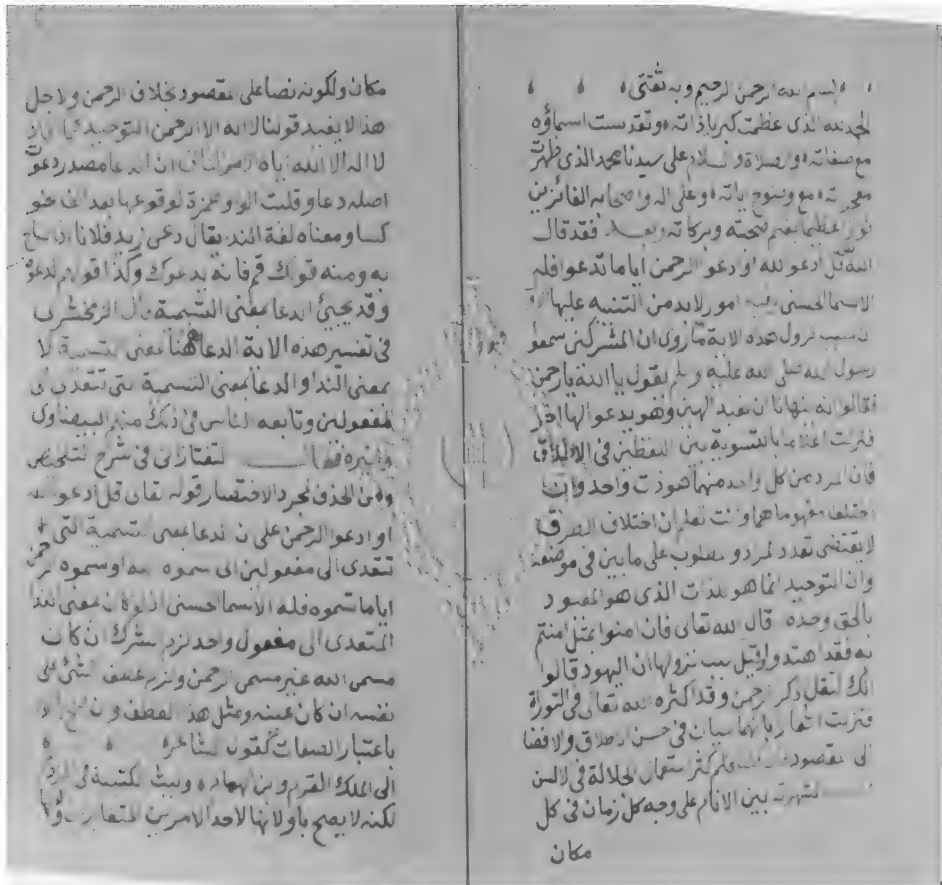 بسم الله الرحمن الرحيم وبه ثقتى
الحمد لله الذى عظمت كبرياء ذاته وتقدست اسماؤه
مع صفاته والصلاة والسلام على سيدنا محمد الذى ظهرت
معجزته مع وضوح اياته وعلى اله واصحابه الفائزين
فوزا عظيما بفضم صحبته وبركاته وبعد فقد قال
الله قل ادعو لله او ادعو الرحمن اياما تدعوا فله
الاسما الحسنى فيه امور لابد من التنبه عليها
سبب نزول هذه الاية ما روى ان المشركين سمعوا
رسول الله صلى الله عليه وسلم يقول يا الله يا رحمن
فقالوا انه ينهانا ان نعبد الهين وهو يدعو الها اخر
فنزلت اعلاما بالتسوية بين اللفظين فى الاطلاق
فان المراد من كل واحد منهما هو ذت واحد وان
اختلف مفهوماهما وانت تعلم ان اختلاف الطرق
لا يقتضى تعدد المراد والمطلوب على ما بين فى موضعه
وان التوحيد انما هو للذات الذى هو المقصود
بالحق وحده قال الله تعالى فان امنوا بمثل امنتم
به فقد اهتدوا وقيل سبب نزولها ان اليهود قالوا
انك لتقل ذكر الرحمن وقد اكثره الله تعالى فى التوراة
فنزلت اشعارا بانهما سيان فى حسن الاطلاق والافضا
الى المقصود ولم كثر استعمال الجلالة فى الالسن
لشهرته بين الانام على وجه كل زمان فى كل
مكان
مكان ولكونه نصا على المقصود بخلاف الرحمن ولاجل
هذا لا يفيد قولنا لا اله الا الرحمن التوحيد كما افاد
لا اله الا الله اياه الامر الثانى ان الدعا مصدر دعوت
اصله دعاو قلبت الواو همزة لوقوعها بعد الف نحو
كسا ومعناه لغة الندا يقال دعى زيد فلانا اذا صاح
به ومنه قولك قم فانه يدعوك وكذا قولهم لدعوة
وقد يجئ الدعا بمعنى التسمية قال الزمخشرى
فى تفسير هذه الاية الدعا ههنا بمعنى التسمية لا
بمعنى الندا والدعا بمعنى التسمية حتى تتعدى الى
المفعولين وتابعه الناس فى ذلك منهم البيضاوى
وغيره فقال التفتازانى فى شرح التلخيص
ومن الحذف لمجرد الاختصار قوله تعالى قل ادعو الله
او ادعوا الرحمن على ان الدعا بمعنى التسمية التى
تتعدى الى مفعولين اى سموه الله او سموه الرحمن
اياما تسموه فله الاسما الحسنى اذ لو كان بمعنى الندا
المتعدى الى مفعول واحد لزم الشرك ان كان
مسمى الله غير مسمى الرحمن ولزم عطف الشئ على
نفسه ان كان عينه ومثل هذا العطف وان صح بالواو
باعتبار الصفات كقول الشاعر
الى الملك القرم وابن الهمام وليث الكتيبة فى المزدحم
لكنه لا يصح باو لانها لاحد الامرين المتغايرين